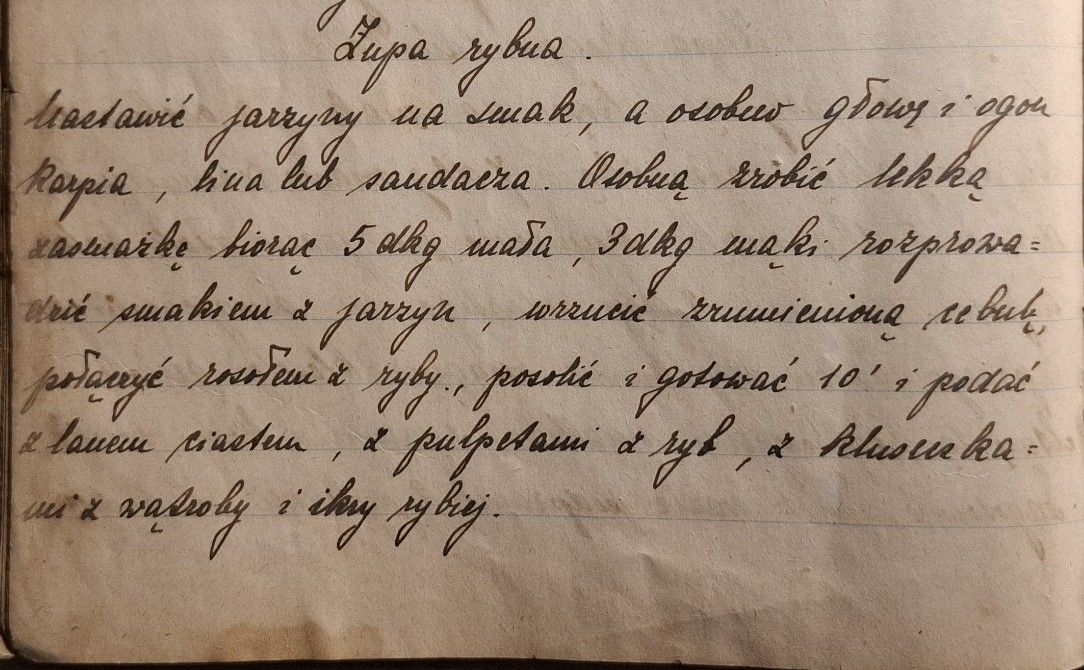 Zupa rybna.
Nastawić jarzyny na smak, a osobno głowę i ogon
karpia, lina lub sandacza. Osobną zrobić lekką
zasmażkę biorąc 5 dkg masła, 3 dkg mąki rozprowa=
dzić smakiem z jarzyn, wrzucić zrumienioną cebulę,
połączyć rosołem z ryby., posolić i gotować 10' i podać
z lanem ciastem, z pulpetami z ryb, z kluseczka=
mi z wątroby i ikry rybiej.